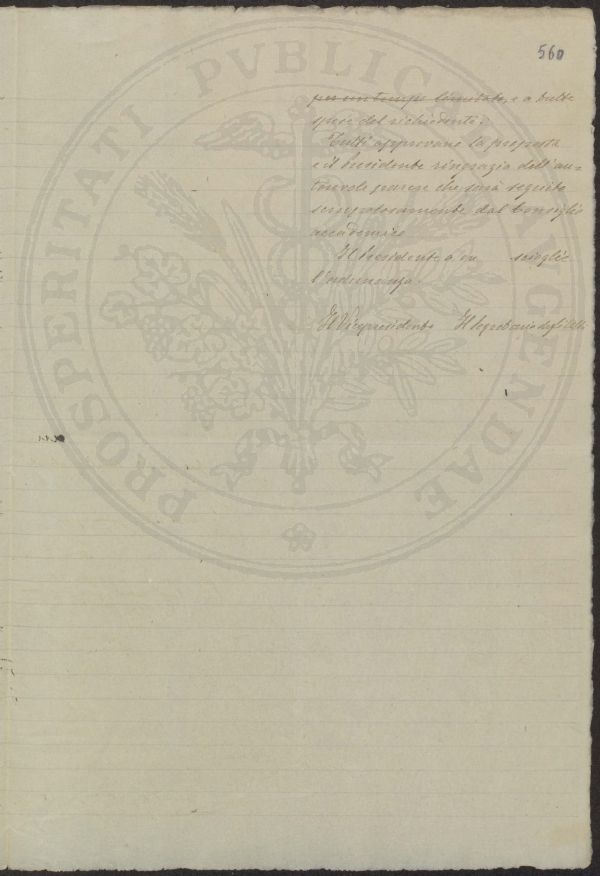 560
per un tempo limitato, e a tutte
spese del richiedente.
Tutti approvano la proposta
e il Presidente ringrazia dell'au-
torevole parere che sarà seguito
scrupolosamente dal Consiglio
accademico
Il Presidente a ore scioglie
l'adunanza.
Il Vicepresidente Il Segretario degli Atti
PROSPERITATI PVBLICAE AVGENDAE